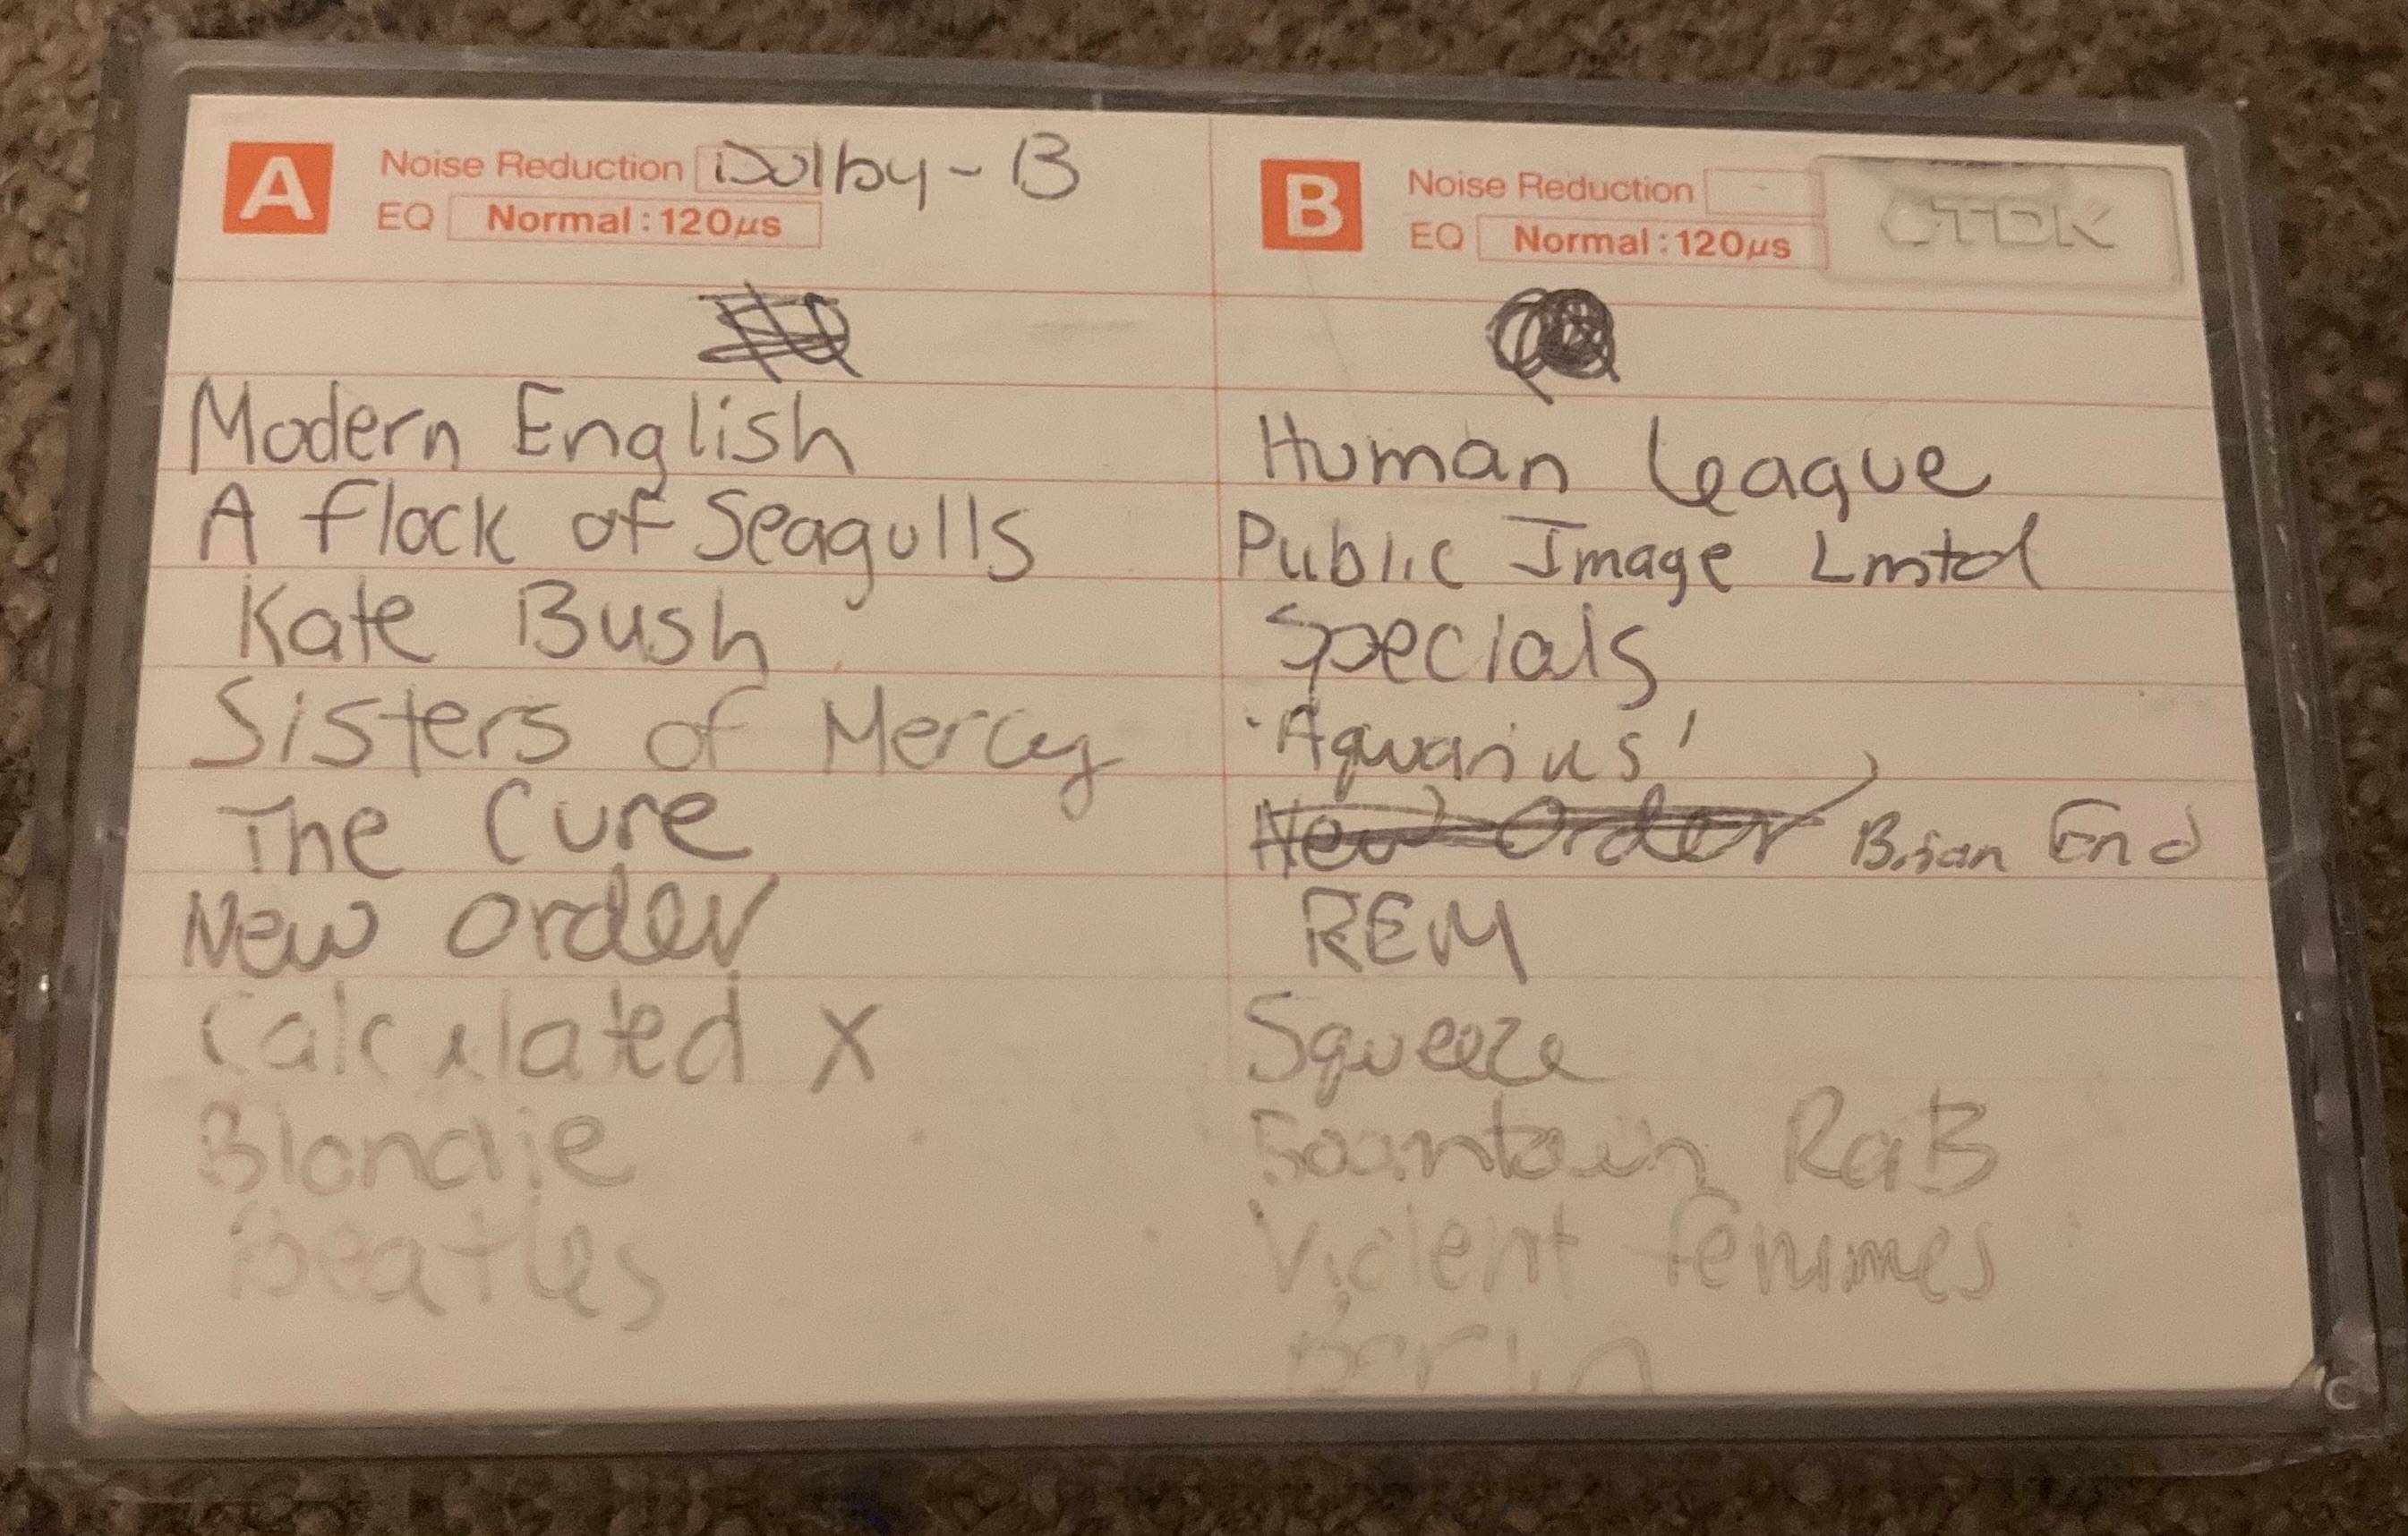 A Noise Reduction Dolby-B
EQ Normal : 120μs
Modern English
A flock of Seagulls
Kate Bush
Sisters of Mercy
The Cure
New Order
Calculated X
Blondie
Beatles
B Noise Reduction
EQ Normal : 120μs
TDK
Human League
Public Image Lmtd
Specials
'Aquarius'
New Order Brian Eno
REM
Squeeze
RaB
Violent femmes
Berlin